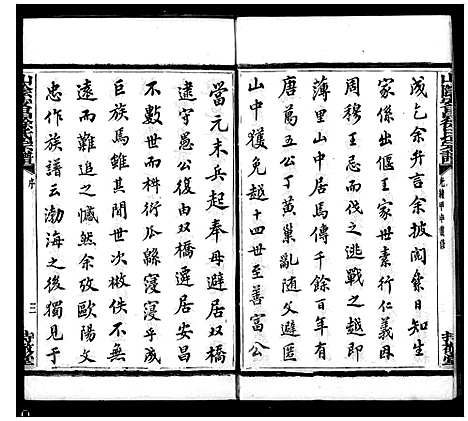 成乞余弁言余披閱集日知生
家係出偃王家世素行仁義因
周穆王忌而伐之逃戰之越即
薄里山中居焉傳千餘百年有
唐萬五公丁黃巢亂隨父避匿
山中獲免越十四世至善富公
當元末兵起奉母避居双橋
逮守愚公復由双橋遷居安昌
不數世而科衍瓜緜寖寖乎成
巨族焉雖其間世次撤佚不無
遠而難追之憾然余攷歐陽文
忠作族譜云渤海之後獨見于
序
三